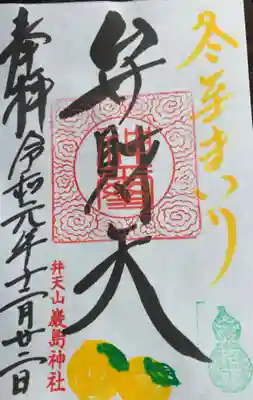 冬至まいり
弁財天
弁天山 嚴島神社
奉拝
令和元年十二月廿二日